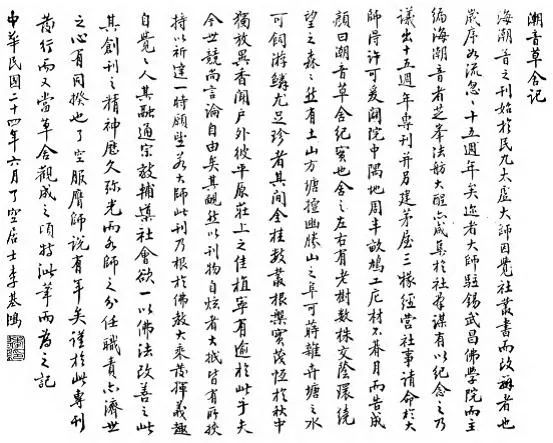 潮音草舍記
海潮音之刊始於民九太虛大師因覺社叢書而改辦者也
歲序如流忽忽十五週年矣迩者大師駐錫武昌佛學院而主
編海潮音者芝峯法舫大醒亦咸集於社羣謀有以紀念之乃
議出十五週年專刊并另建茅屋三椽經營社事請命於大
師得許可爰闢院中隅地周丰畝鳩工庀材不朞月而告成
顏曰潮音草舍紀實也舍之左右有老樹數株交蔭環繞
望之森森然有土山方塘擅幽勝山之阜可蒔雜卉塘之水
可飼游鱗尤足珍者其間金桂數叢根槃實茂恆於秋中
獨放異香聞戶外彼平原莊上之佳植寧有逾於此乎夫
今世競尚言論自由矣其靦然以刊物自炫者大抵皆有所挾
持以祈達一時願望若大師此刊乃根於佛教大乘發揮義趣
自覺覺人其融通宗教補漢社會欲一以佛法改善之此
其創刊之精神歷久弥光而為師之分任職責亦濟世
之心有同揆也了空服膺師說有年矣謹於此專刊
發行而又當草舍觀成之頃特泚筆而為之記
中華民國二十四年六月了空居士李基鴻